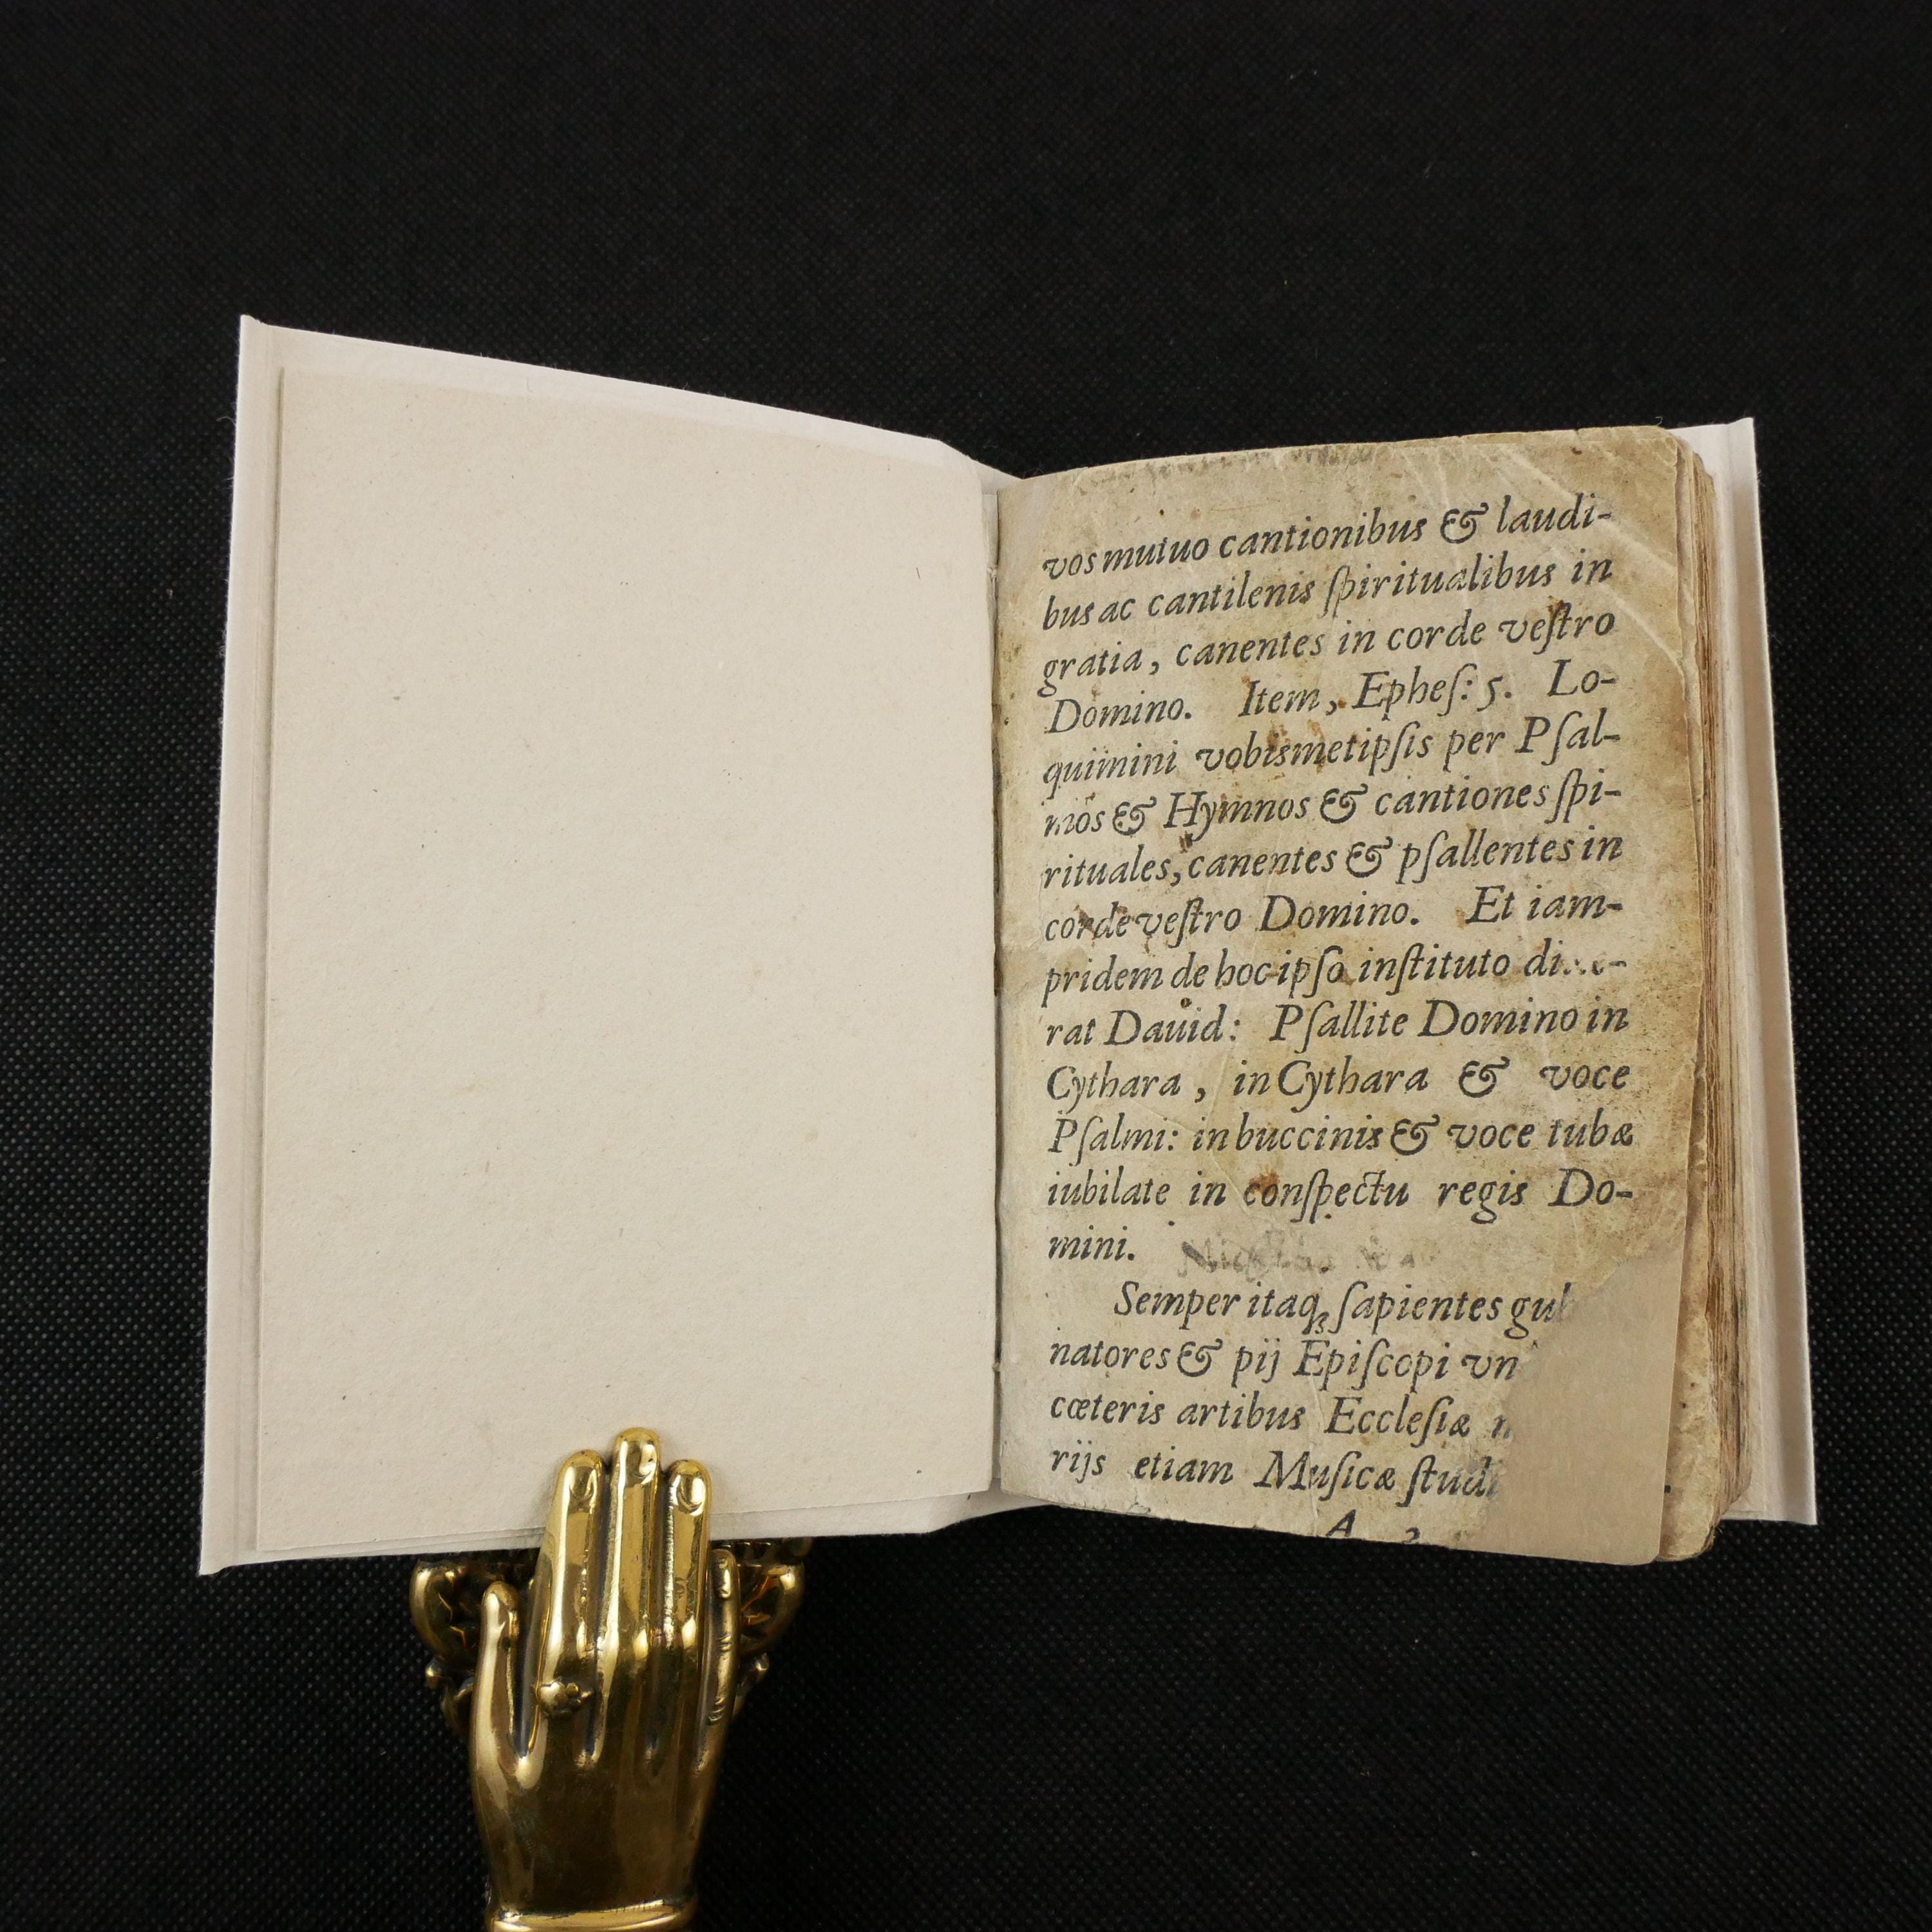 vos mutuo cantionibus & laudi-
bus ac cantilenis ſpiritualibus in
gratia, canentes in corde veſtro
Domino. Item, Epheſ: 5. Lo-
quimini vobismetipſis per Pſal-
mos & Hymnos & cantiones ſpi-
rituales, canentes & pſallentes in
corde veſtro Domino. Et iam-
pridem de hoc ipſo inſtituto
rat Dauid: Pſallite Domino in
Cythara, in Cythara & voce
Pſalmi: in buccinis & voce tubæ
iubilate in conſpectu regis Do-
mini.
Semper itaqꝫ ſapientes
natores & pij Epiſcopi
cœteris artibus Eccleſiæ
rijs etiam Muſicæ
A 2